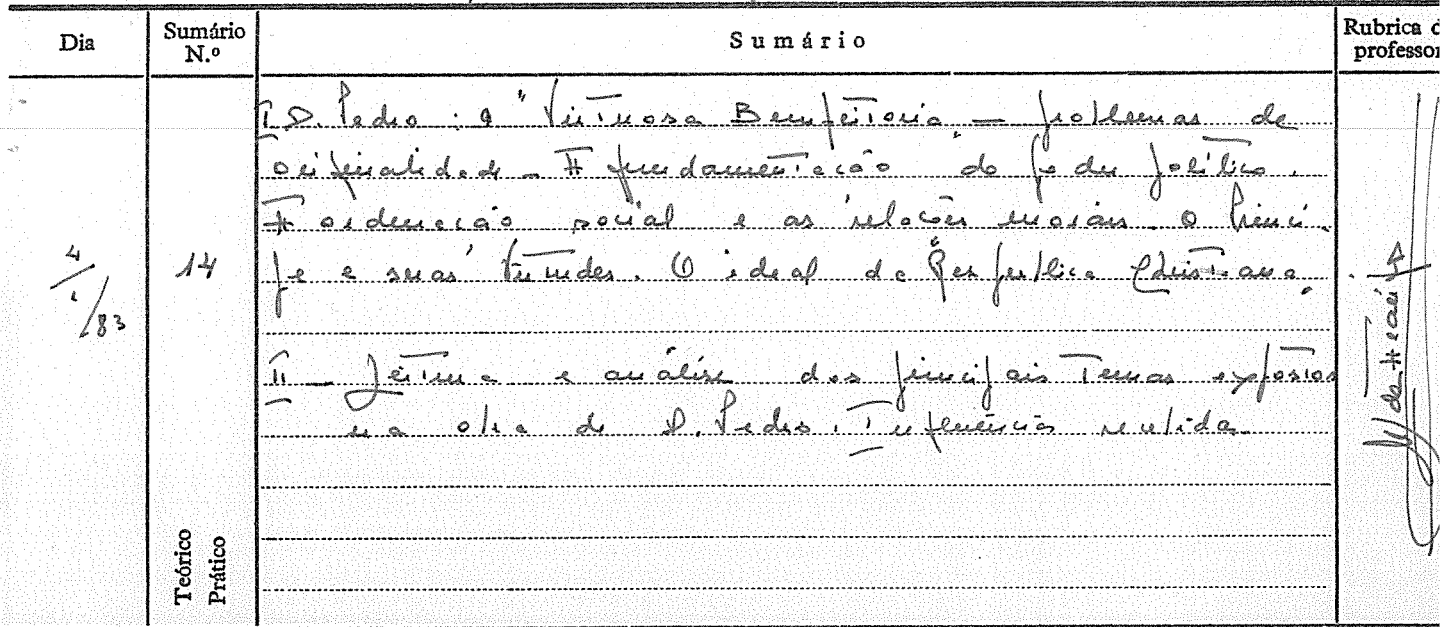 Dia
Sumário N.º
Sumário
Rubrica d
professor
I D. Pedro : a "Virtuosa Bemfeitoria" – problemas de
originalidade – A fundamentação do poder político.
A ordenação social e as relações morais. O Prínci-
pe e suas virtudes. O ideal da "Respublica Christiana".
4/1/83
14
II – Leitura e análise dos principais temas expostos
na obra de D. Pedro. Influências
Teórico
Prático